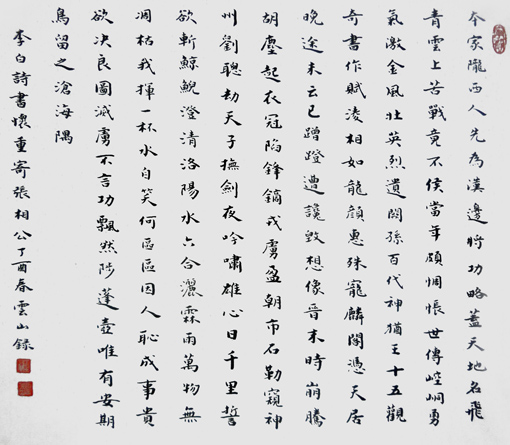 本家隴西人先為漢邊將功略蓋天地名飛
青雲上苦戰竟不侯當年頗惆悵世傳崆峒勇
氣激金風壯英烈遺厥孫百代神猶王十五觀
奇書作賦凌相如龍顏惠殊寵麟閣憑天居
晚途未云已蹭蹬遭讒毀想像晉末時崩騰
胡塵起衣冠陷鋒鏑戎虜盈朝市石勒窺神
州劉聰劫天子撫劍夜吟嘯雄心日千里誓
欲斬鯨鯢澄清洛陽水六合灑霖雨萬物無
凋枯我揮一杯水自笑何區區因人恥成事貴
欲决良圖滅虜不言功飄然陟蓬壺唯有安期
舄留之滄海隅
李白詩書懷重寄張相公丁酉春雲山錄